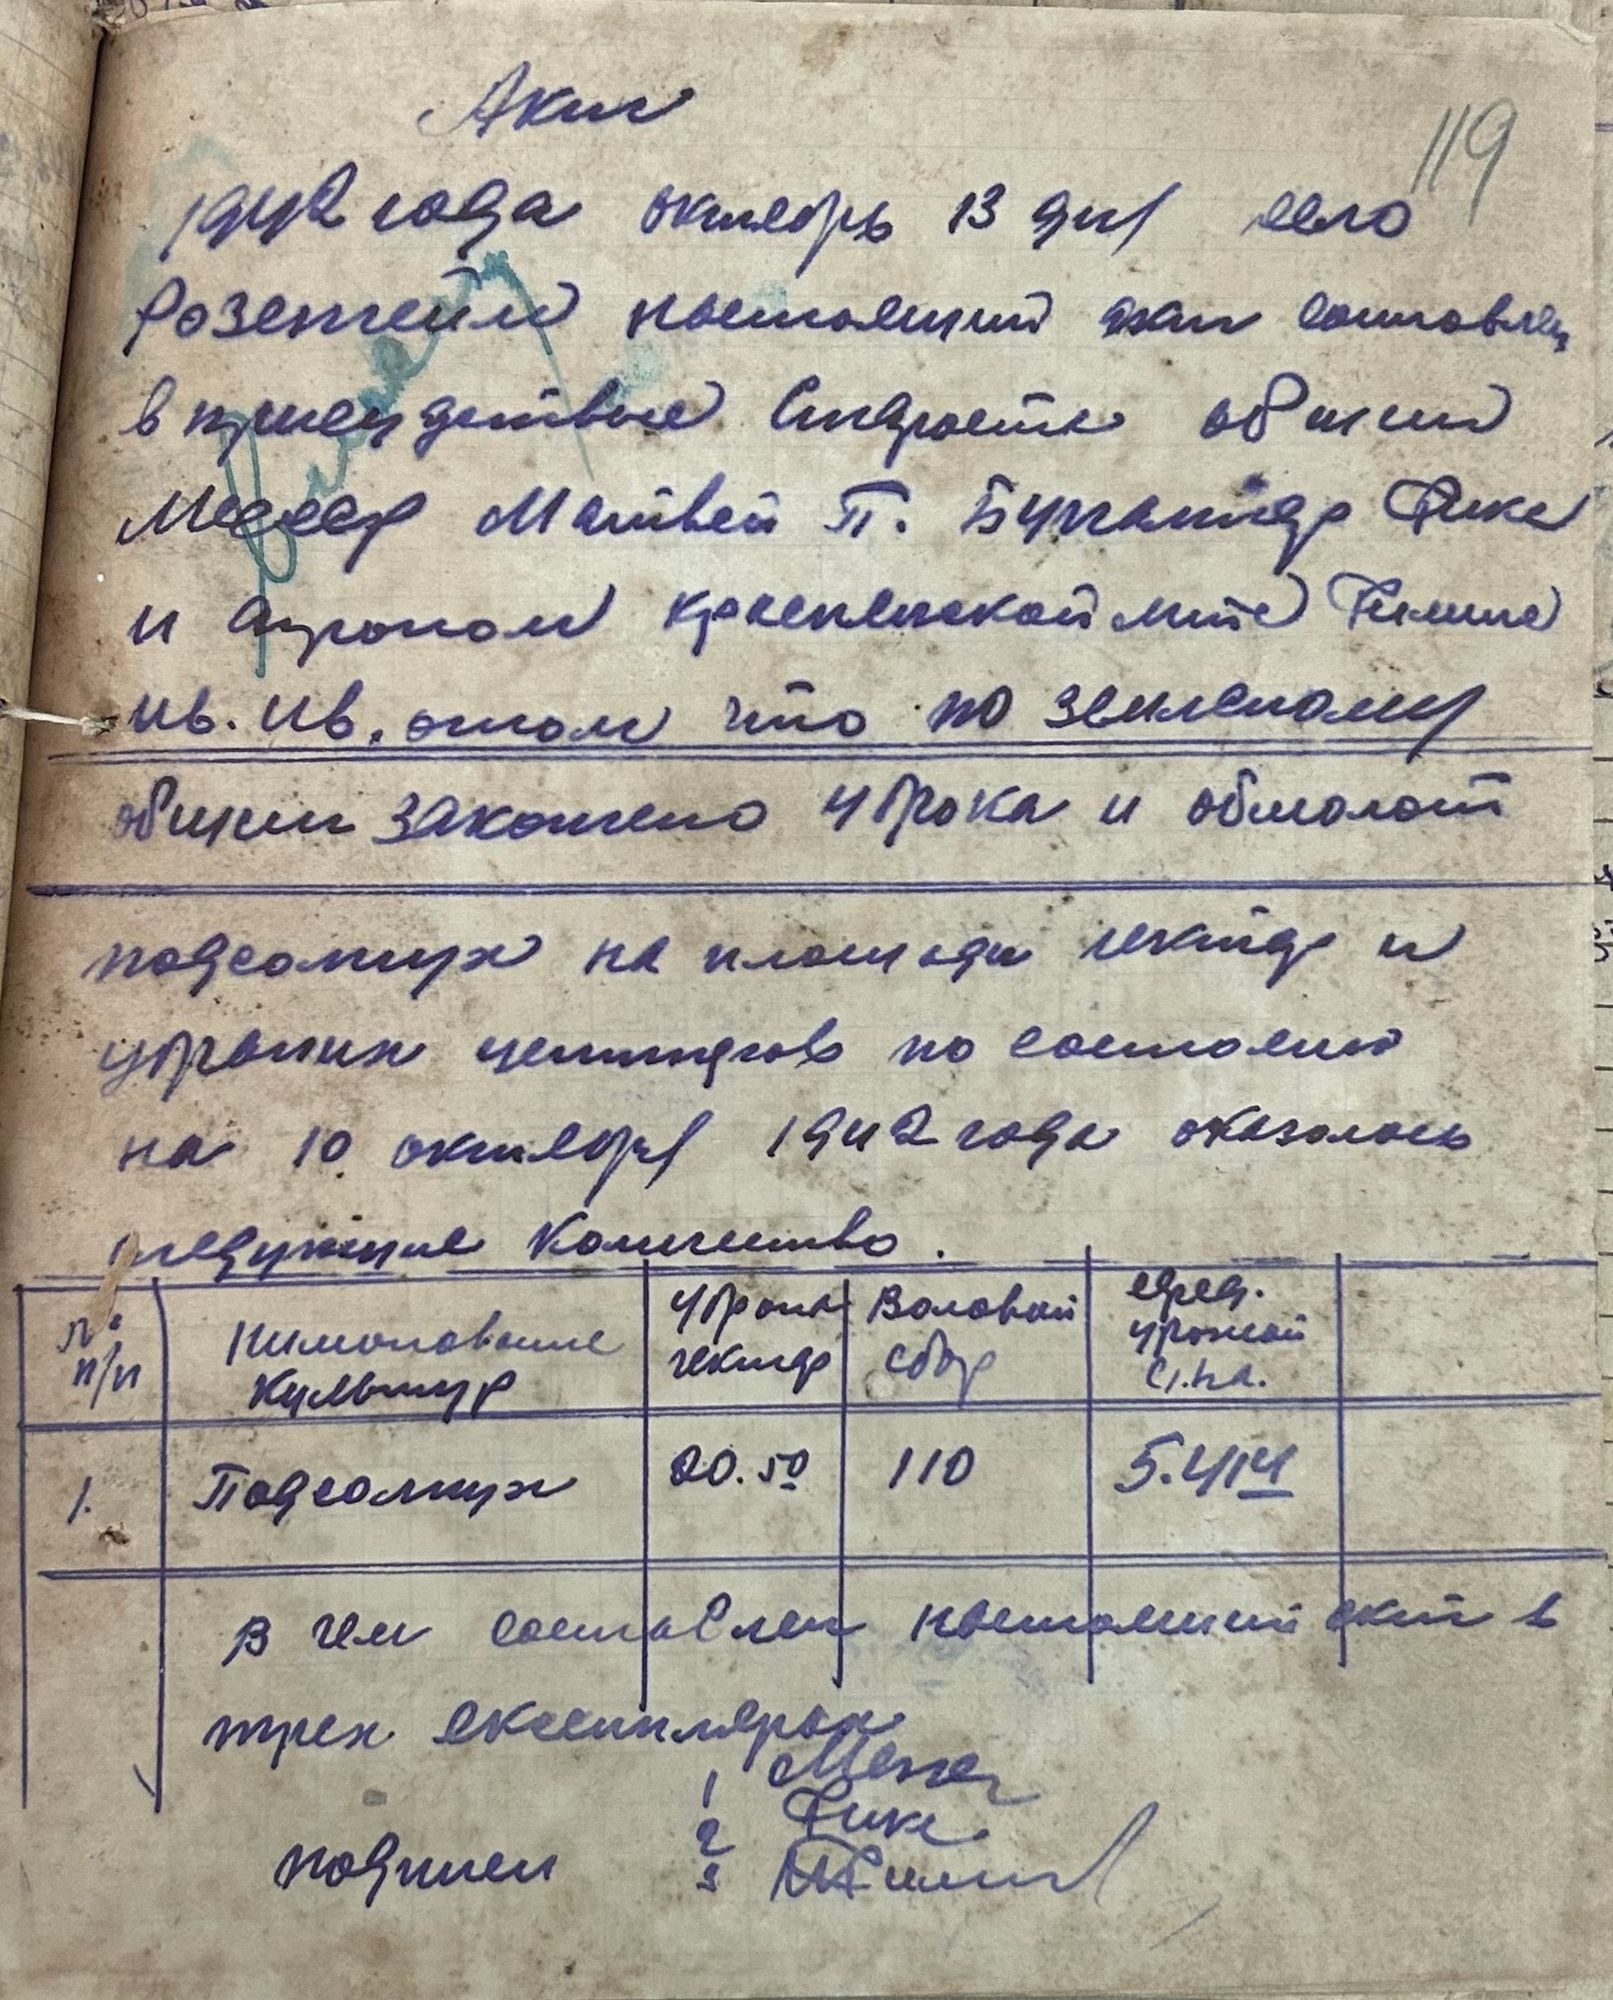 Акт
119
1942 года октябрь 13 дня село
Розентейм настоящий акт составлен
в присудствие Старосты общин
Матвей П. Бухгалтер Фике
и агроном МТС Филип
Ив. Ив. отом что по земленому
общин закончено уброка и обмолот
подсолнух на площади гектар и
убраних центнеров по состояний
на 10 октября 1942 года оказалось
следующие количество.
№ п/п
Нимонование культур
Убрано гектар
Воловой сбор
сред. урожай с 1.га.
1.
Подсолнух
20.50
110
5.4
В чем составлен настоящий акт в
трех екземплярах
подписи
1
2 Фике
3